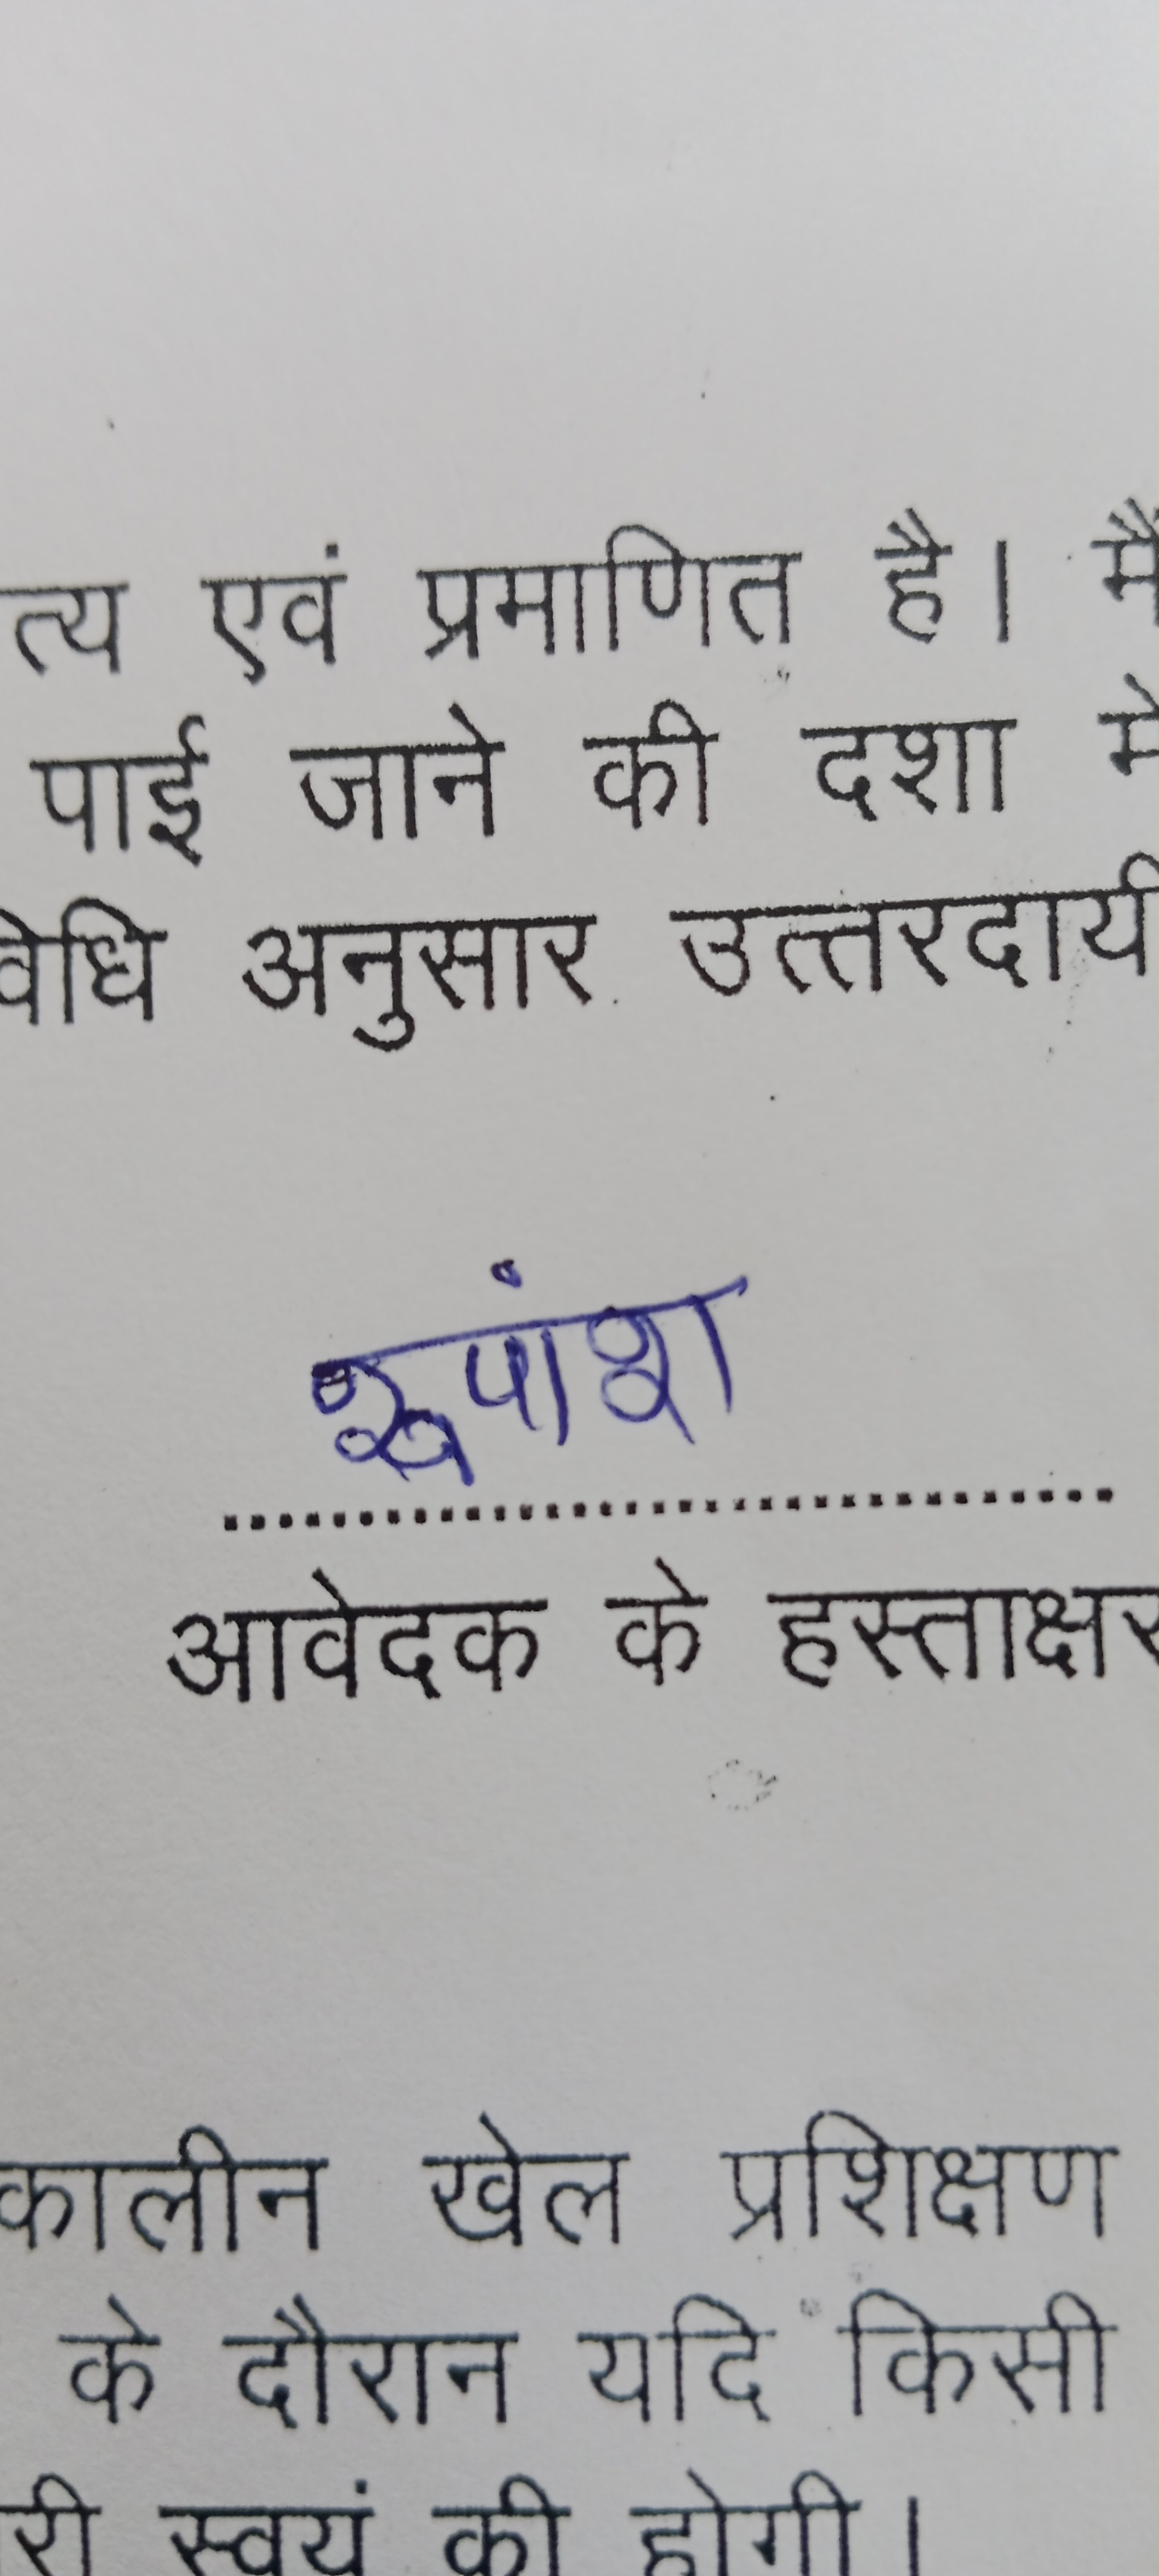 त्य एवं प्रमाणित है। मैं
पाई जाने की दशा मे
विधि अनुसार उत्तरदायी
रूपांश
........................................
आवेदक के हस्ताक्षर
कालीन खेल प्रशिक्षण
के दौरान यदि किसी
री स्वयं की होगी।